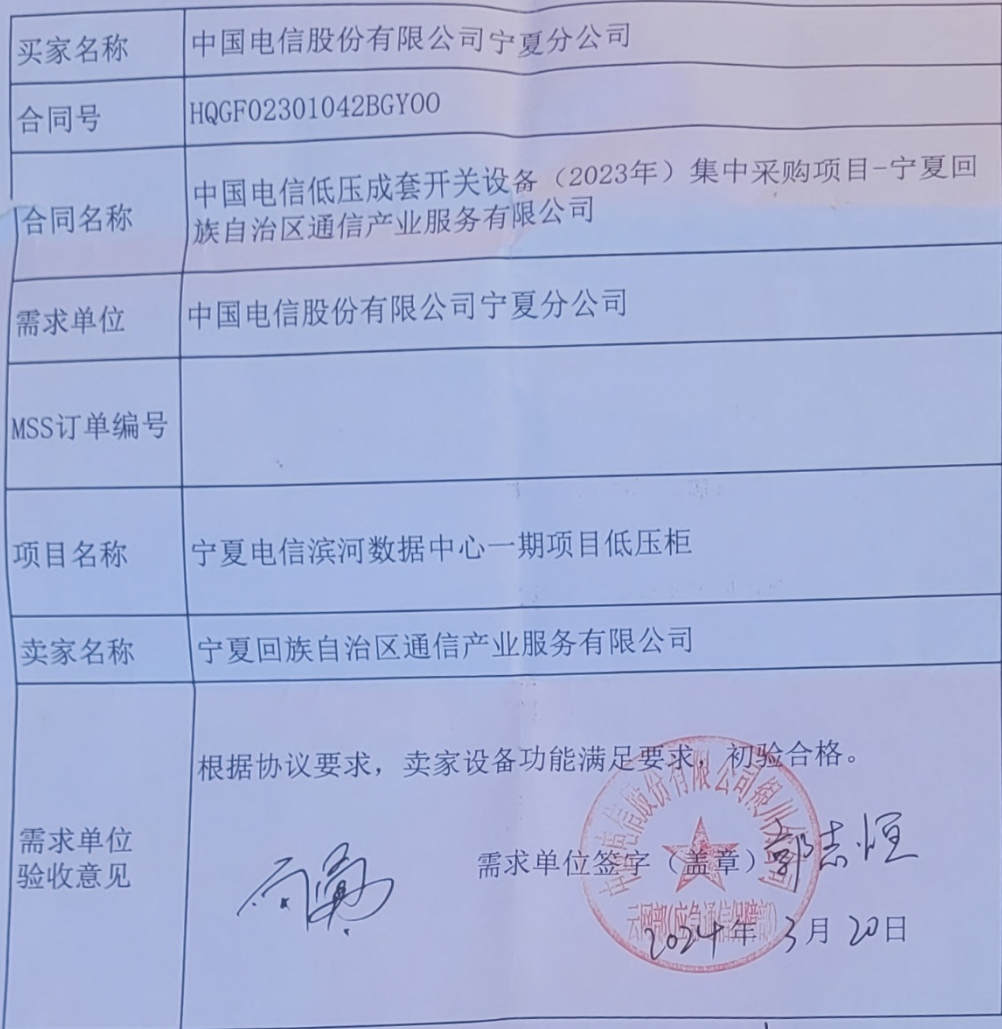 买家名称
中国电信股份有限公司宁夏分公司
合同号
HQGF02301042BGY00
合同名称
中国电信低压成套开关设备（2023年）集中采购项目-宁夏回
族自治区通信产业服务有限公司
需求单位
中国电信股份有限公司宁夏分公司
MSS订单编号
项目名称
宁夏电信滨河数据中心一期项目低压柜
卖家名称
宁夏回族自治区通信产业服务有限公司
需求单位
验收意见
根据协议要求，卖家设备功能满足要求，初验合格。
中国电信股份有限公司银川分公司
需求单位签字（盖章）郭志恒
云网部(应急通信保障部)
2024年3月20日